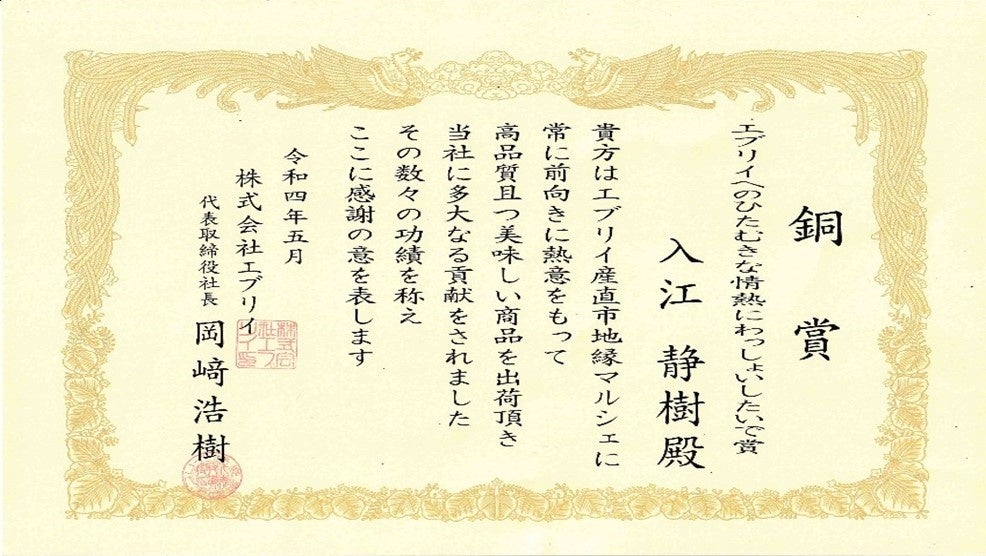 銅賞
エブリイへのひたむきな情熱にわっしょいしたいで賞
入江 静樹殿
貴方はエブリイ産直市地縁マルシェに
常に前向きに熱意をもって
高品質且つ美味しい商品を出荷頂き
当社に多大なる貢献をされました
その数々の功績を称え
ここに感謝の意を表します
令和四年五月
株式会社エブリイ
代表取締役社長 岡﨑浩樹